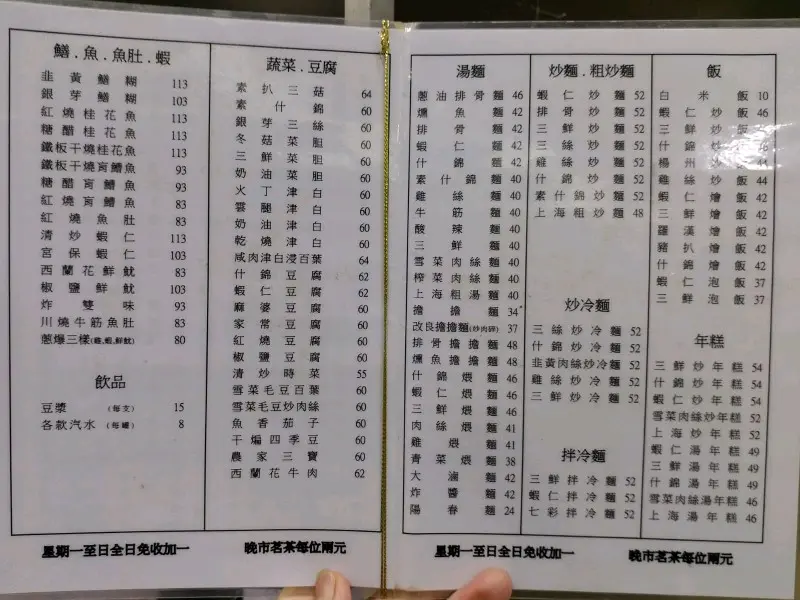 鱔.魚.魚肚.蝦
韭黃鱔糊 113
銀芽鱔糊 103
紅燒桂花魚 113
糖醋桂花魚 113
鐵板干燒桂花魚 113
鐵板干燒肓鰽魚 93
糖醋肓鰽魚 93
紅燒肓鰽魚 83
紅燒魚肚 83
清炒蝦仁 113
宮保蝦仁 103
西蘭花鮮魷 83
椒鹽鮮魷 103
炸雙味 93
川燒牛筋魚肚 83
蔥爆三樣(雞,蝦,鮮魷) 80
飲品
豆漿 (每支) 15
各款汽水 (每罐) 8
蔬菜.豆腐
素扒三菇 64
素什錦 60
銀芽三絲 60
冬菇菜胆 60
三鮮菜胆 60
奶油菜胆 60
火丁津白 60
雲腿津白 60
奶油津白 60
乾燒津白 60
咸肉津白浸百葉 64
什錦豆腐 62
蝦仁豆腐 62
麻婆豆腐 60
家常豆腐 60
紅燒豆腐 60
椒鹽豆腐 60
清炒時菜 55
雪菜毛豆百葉 60
雪菜毛豆炒肉絲 60
魚香茄子 60
干煸四季豆 60
農家三寶 60
西蘭花牛肉 62
星期一至日全日免收加一
晚市茗茶每位兩元
湯麵
蔥油排骨麵 46
燻魚麵 42
排骨麵 42
蝦仁麵 42
什錦麵 42
素什錦麵 40
雞絲麵 40
牛筋麵 40
酸辣麵 40
三鮮麵 40
雪菜肉絲麵 40
榨菜肉絲麵 40
上海粗湯麵 40
擔擔麵 34
改良擔擔麵(炒肉碎) 37
排骨擔擔麵 48
燻魚擔擔麵 48
什錦煨麵 46
蝦仁煨麵 46
三鮮煨麵 46
肉絲煨麵 41
雞煨麵 41
青菜煨麵 38
大滷麵 42
炸醬麵 42
陽春麵 24
炒麵.粗炒麵
蝦仁炒麵 52
排骨炒麵 52
三鮮炒麵 52
三絲炒麵 52
雞絲炒麵 52
什錦炒麵 52
素什錦炒麵 52
上海粗炒麵 48
炒冷麵
三絲炒冷麵 52
什錦炒冷麵 52
韭黃肉絲炒冷麵 52
雞絲炒冷麵 52
三鮮炒冷麵 52
拌冷麵
三鮮拌冷麵 52
蝦仁拌冷麵 52
七彩拌冷麵 52
飯
白米飯 10
蝦仁炒飯 46
三鮮炒飯
什錦炒
楊州炒
雞絲炒飯 44
蝦仁燴飯 42
三鮮燴飯 42
羅漢燴飯 42
豬扒燴飯 42
什錦燴飯 42
蝦仁泡飯 37
三鮮泡飯 37
年糕
三鮮炒年糕 54
什錦炒年糕 54
蝦仁炒年糕 54
雪菜肉絲炒年糕 52
上海炒年糕 52
蝦仁湯年糕 49
三鮮湯年糕 49
什錦湯年糕 49
雪菜肉絲湯年糕 46
上海湯年糕 46
星期一至日全日免收加一
晚市茗茶每位兩元